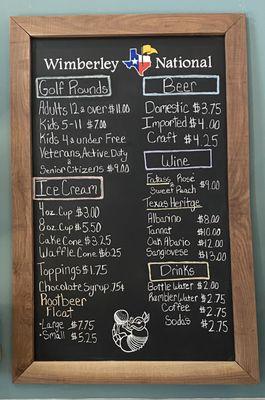 Wimberley National
Golf Rounds
Adults 12 & over $11.00
Kids 5-11 $7.00
Kids 4 & under Free
Veterans, Active Duty
&
Senior Citizens $9.00
Ice Cream
4 oz. Cup $3.00
8 oz. Cup $5.50
Cake Cone $3.25
Waffle Cone $6.25
Toppings $1.75
Chocolate Syrup 75¢
Rootbeer
Float
-Large $7.75
-Small $5.25
Beer
Domestic $3.75
Imported $4.00
Craft $4.25
Wine
Fatass Rosé
&
Sweet Peach $9.00
Texas Heritage
Albarino $8.00
Tannat $10.00
Oak Abario $12.00
Sangiovese $13.00
Drinks
Bottle Water $2.00
Rambler Water $2.75
Coffee $2.75
Soda's $2.75